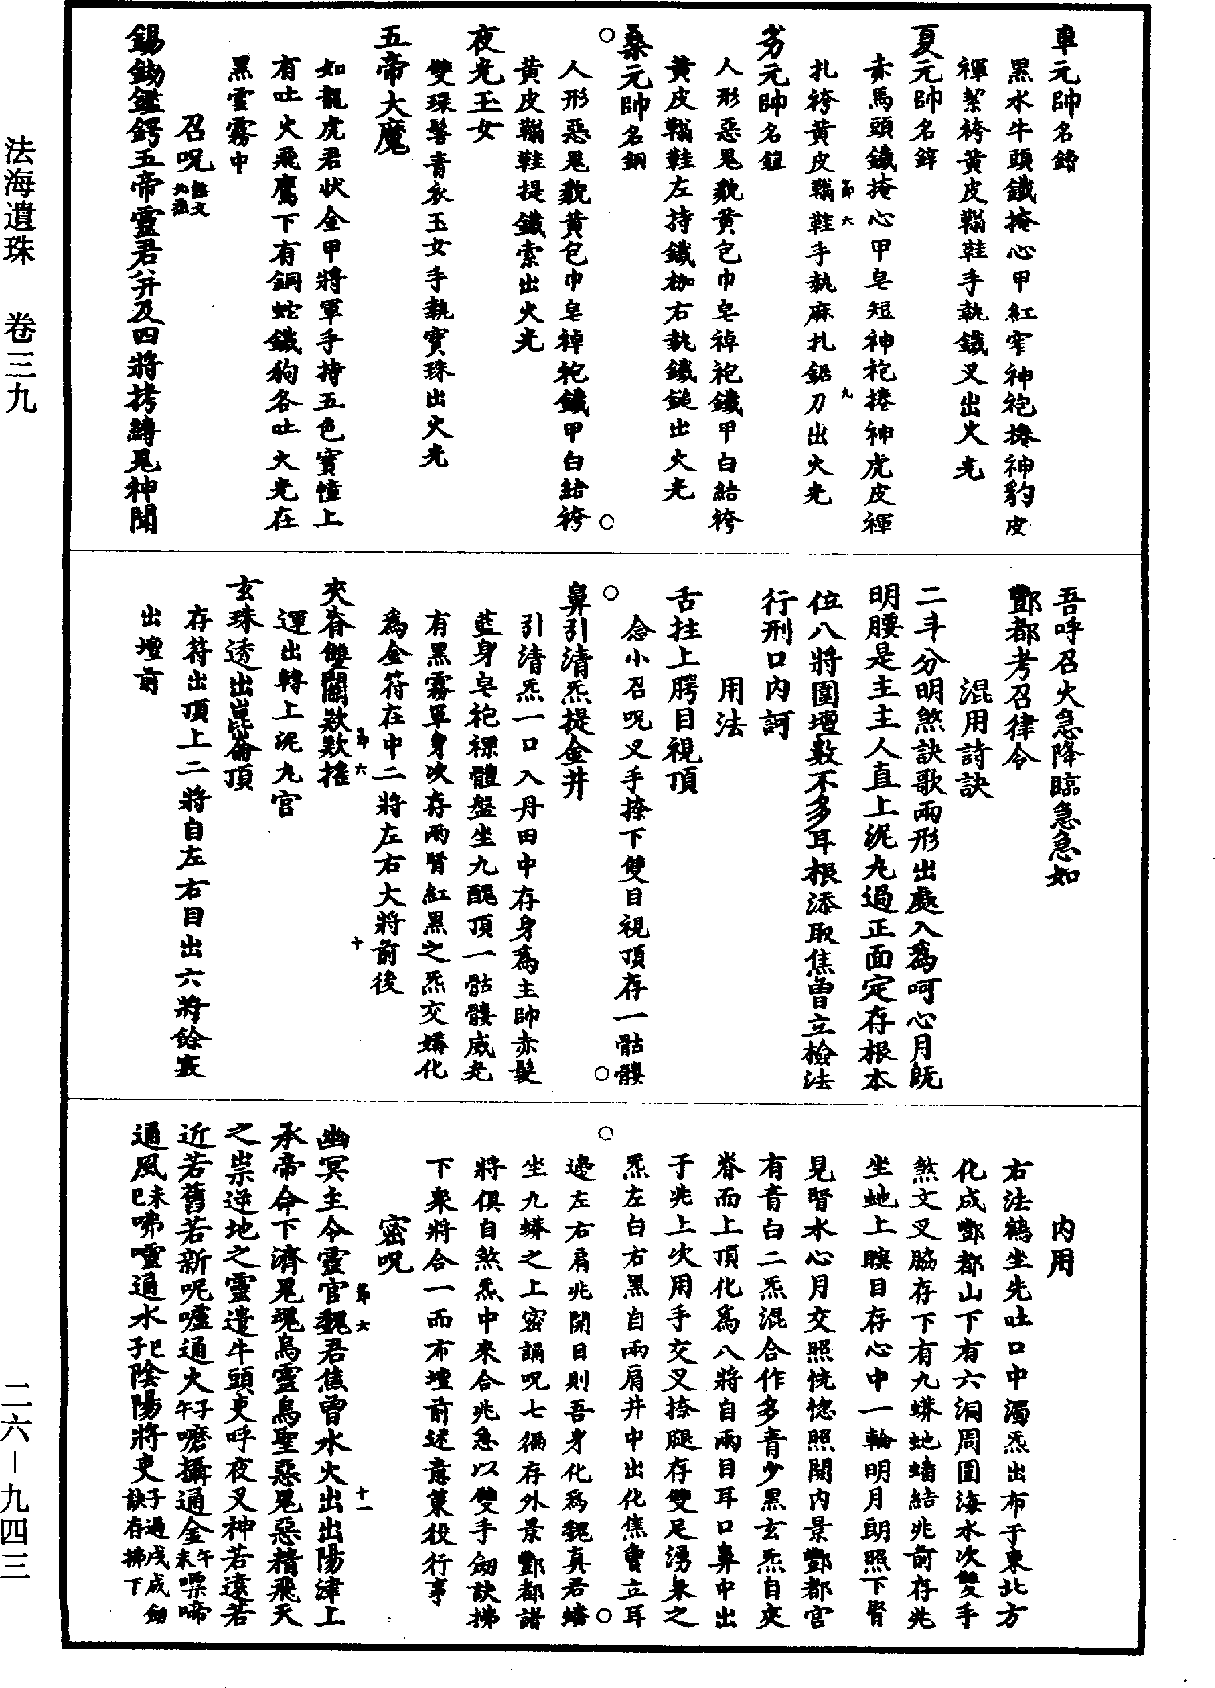 法海遺珠　卷三九
二六－九四三
車元帥名鎛
黑水牛頭鐵掩心甲紅窄神袍捲神豹皮
褌絜袴黃皮䩺鞋手執鐵叉出火光
夏元帥名鋅
赤馬頭鐵掩心甲皂短神袍捲神虎皮褌
扎袴黃皮䩺鞋手執麻扎鋸刀出火光
第六　九
人形惡鬼貌黃包巾皂禪袍鐵甲白結袴
黃皮䩺鞋左持鐵枷右執鐵鎚出火光
桑元帥名鋼
人形惡鬼貌黃包巾皂禪袍鐵甲白結袴
黃皮䩺鞋提鐵索出火光
夜光玉女
雙珠髻青衣玉女手執寶珠出火光
五帝大魔
如龍虎君狀金甲將軍手持五色寶幢上
有吐火飛鷹下有銅蛇鐵狗各吐火光在
黑雲霧中
召呪
五帝靈君并及四將拷縛鬼神聞
吾呼召火急降臨急急如
酆都考召律令
混用詩訣
二斗八分明煞訣歌兩形出處入為呵心月旣
明腰是主主人直上泥丸過正面定存根本
位八將圍壇數不多耳根添取焦曾立檢法
行刑口內訶
用法
舌拄上腭目視頂
念小召呪叉手捺下雙目視頂存一骷髏
鼻引清炁提金井
引清炁一口入丹田中存身為主帥赤髮
藍身皂袍裸體盤坐九醜頂一骷髏威光
有黑霧罩身次存兩腎紅黑之炁交媾化
為金符在中二將左右大將前後
夾脊雙關欻欻搖
第六　十
運出轉上泥丸宮
玄珠透出崑崙頂
存符出頂上二將自左右目出六將餘竅
出壇前
內用
右法鶴坐先吐口中濁炁出布于東北方
化成酆都山下有六洞周圍海水次雙手
煞文叉脇存下有九蟒虵蟠結兆前存兆
坐虵上瞑目存心中一輪明月朗照下腎
見腎水心月交照恍惚照開內景酆都宮
有青白二炁混合作多青少黑玄炁自夾
脊而上頂化為八將自兩目耳口鼻中出
于兆上次用手交叉捺腿存雙足湧泉之
炁左白右黑自兩肩井中出化焦曾立耳
邊左右肩兆開目則吾身化為魏真君蟠
坐九蟒之上密誦呪七徧存外景酆都諸
將俱自煞炁中來合兆急以雙手劒訣拂
下眾將合一而布壇前述意策役行事
密呪
第六　十一
幽冥主令靈官魏君焦曾水火出出陽津上
承帝命下濟鬼魂烏靈烏聖惡鬼惡稽飛天
之祟逆地之靈遣牛頭吏呼夜叉神若遠若
近若舊若新呢嚧通火午子嚰攝通金未午㗚啼
通風巳未咈𠸄通水子巳陰陽將吏訣子過戌成劒存拂下